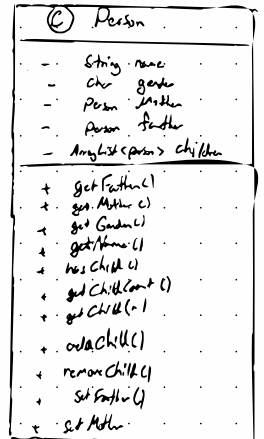 © Person
- String name
- Char gender
- Person Mother
- Person father
- ArrayList<person> children
+ getFather()
+ get Mother ()
+ get Gender()
+ get Name ()
+ has Child ()
+ get Child Count ()
+ get Child (n)
+ add Child ()
+ remove Child ()
+ Set Father ()
+ Set Mother